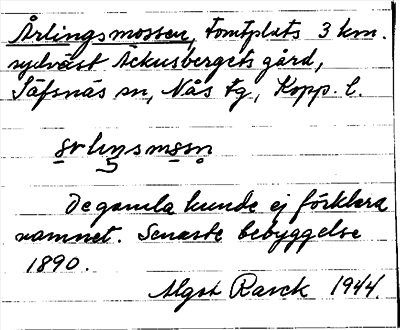 Årlingsmossen, tomtplats 3 km.
sydväst Äckusbergets gård,
Säfsnäs sn, Näs tg, Kopp. l.
De gamla kunde ej förklara
namnet. Senaste bebyggelse
1890.
Algot Rasck 1944.